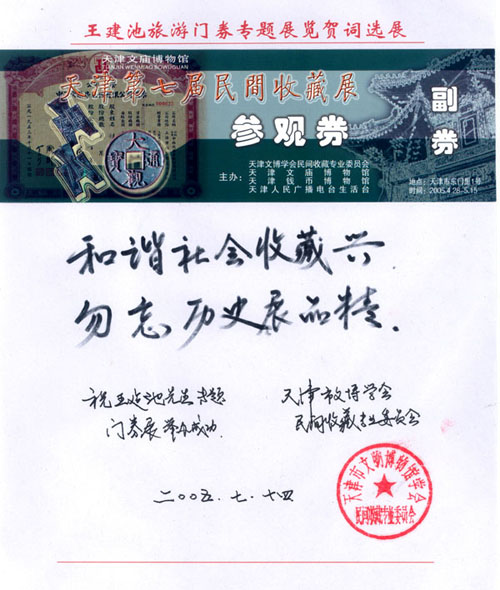 王建池旅游门券专题展览贺词选展
天津文庙博物馆
TIANJIN WENMIAO BOWUGUAN
天津第七届民間收藏展
参观券
副券
大觀通寶
天津文博学会民间收藏专业委员会
主办:天津文庙博物馆
天津钱币博物馆
天津人民广播电台生活台
地点:天津市东门里1号
时间:2005.4.28-5.15
和谐社会收藏兴
勿忘历史展品精.
祝王建池先生专题
门券展举办成功
天津市文博学会
民间收藏专业委员会
二00五.七.十四
天津市文物博物馆学会
民间收藏专业委员会